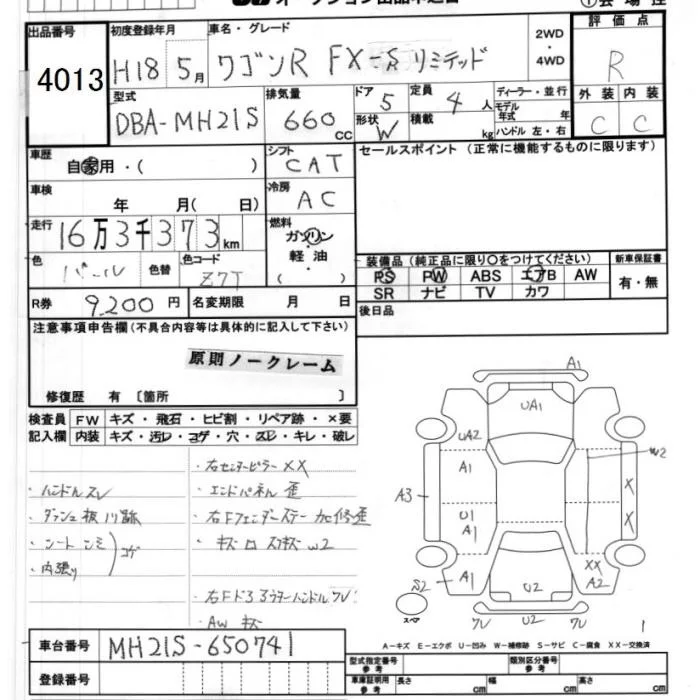 オークション出品申込書
出品番号 4013
初度登録年月 H18 5月
車名・グレード ワゴンR FX-S リミテッド
2WD ・ 4WD
評価点 R
型式 DBA-MH21S
排気量 660 cc
ドア 5
定員 4 人
形状 W
積載 kg
ディーラー・並行
モデル年式 年
ハンドル 左・右
外装 内装
C C
車歴 自家用・( )
シフト CAT
セールスポイント (正常に機能するものに限ります)
車検 年 月( 日)
冷房 AC
走行 16万3千373km
燃料 ガソリン 軽油 ・ ( )
色 パール 色替
色コード Z7T
装備品 (純正品に限り○をつけてください)
PS PW ABS エアB AW
SR ナビ TV カワ
新車保証書 有・無
R券 9,200 円
名変期限 月 日
後日品
注意事項申告欄(不具合内容等は具体的に記入して下さい)
原則ノークレーム
修復歴 有 [箇所 ]
検査員記入欄
FW キズ・飛石・ヒビ割・リペア跡・×要
内装 キズ・汚レ・コゲ・穴・スレ・キレ・破レ
・右センターピラー XX
・ハンドルスレ
・エンドパネル 歪
・ダッシュ板 ハリ跡
・右Fフェンダーステー 加修歪
・シート シミ
・内張り
コゲ
・キズ
W2
・AW キズ
A1
UA1
UA2
A1
W2
A3
X
X
U1
A1
A1
XX
A2
S2
スペア
U2
U2
1
A−キズ E−エクボ U−凹み W−補修跡 S−サビ C−腐食 XX−交換済
車台番号 MH21S-650741
登録番号
型式指定番号 参考
類別区分番号 参考
車庫証明用 参考 長さ cm 幅 cm 高さ cm